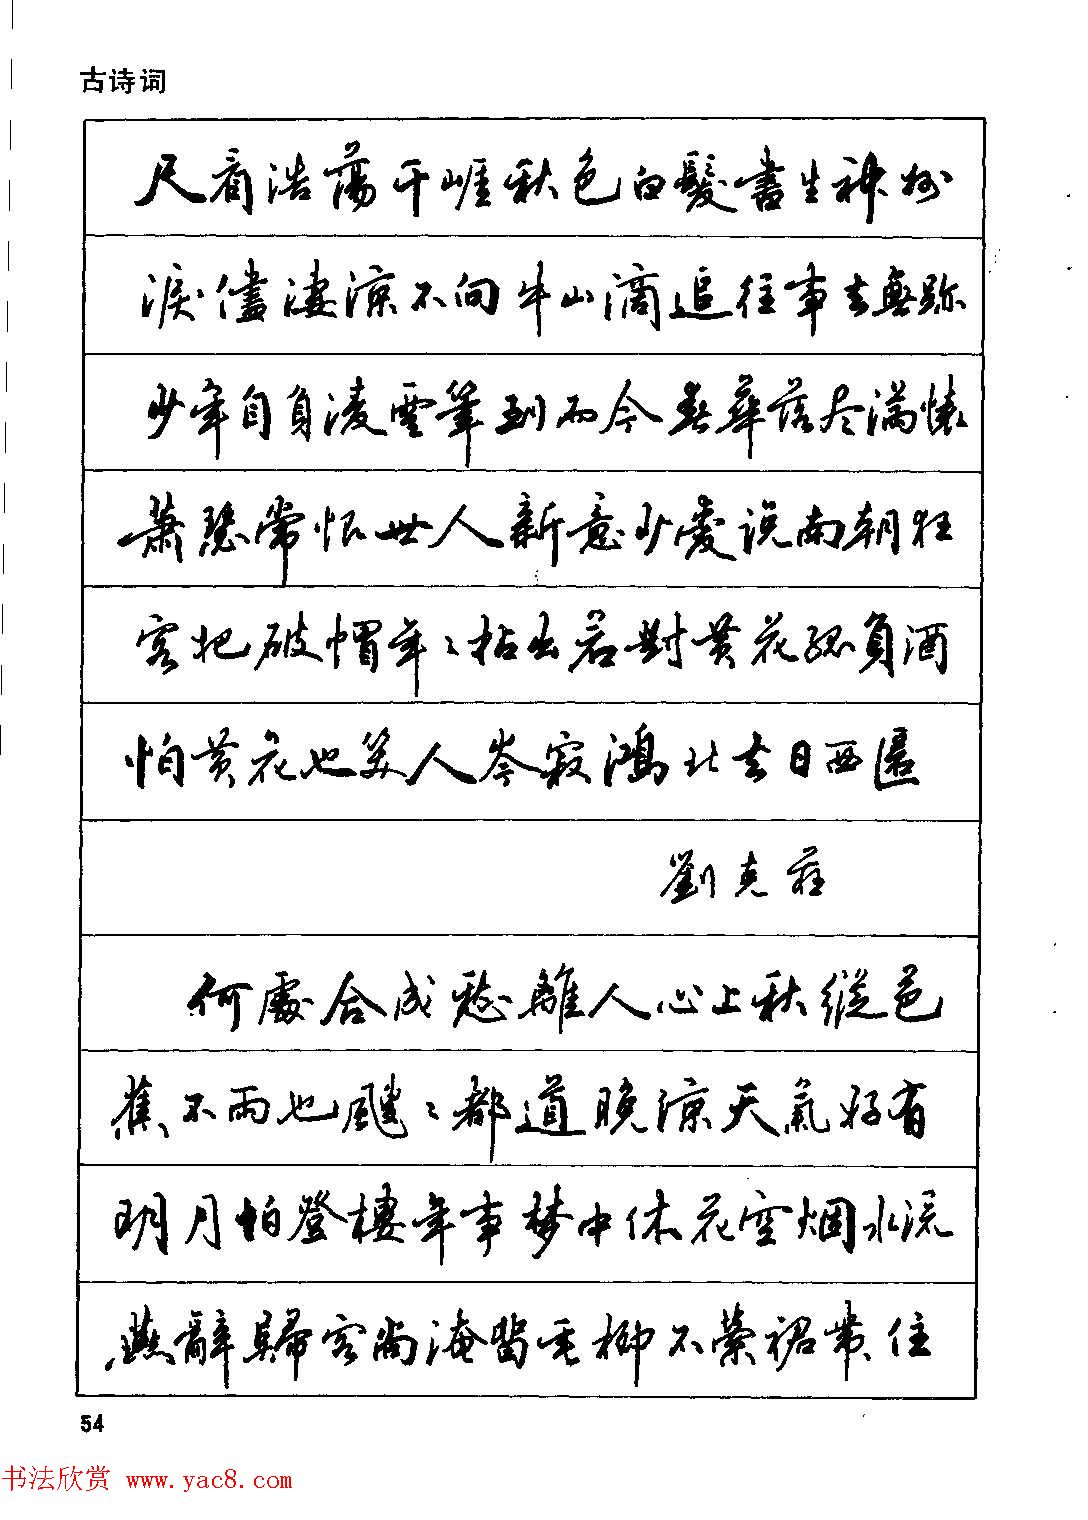 古诗词
尺看浩荡千崖秋色白髮書生神州
淚儘凄涼不向牛山滴追往事去無跡
少年自負凌雲筆到而今春華落尽满懐
萧瑟常恨世人新意少愛说南朝狂
客把破帽年〻拈出若對黄花孤負酒
怕黄花也笑人岑寂鴻北去日西匿
劉克莊
何處合成愁離人心上秋縱芭
蕉不雨也颼〻都道晚涼天氣好有
明月怕登樓年事梦中休花空烟水流
燕辭歸客尚淹留垂柳不縈裙帶住
54
书法欣赏 www.yac8.com